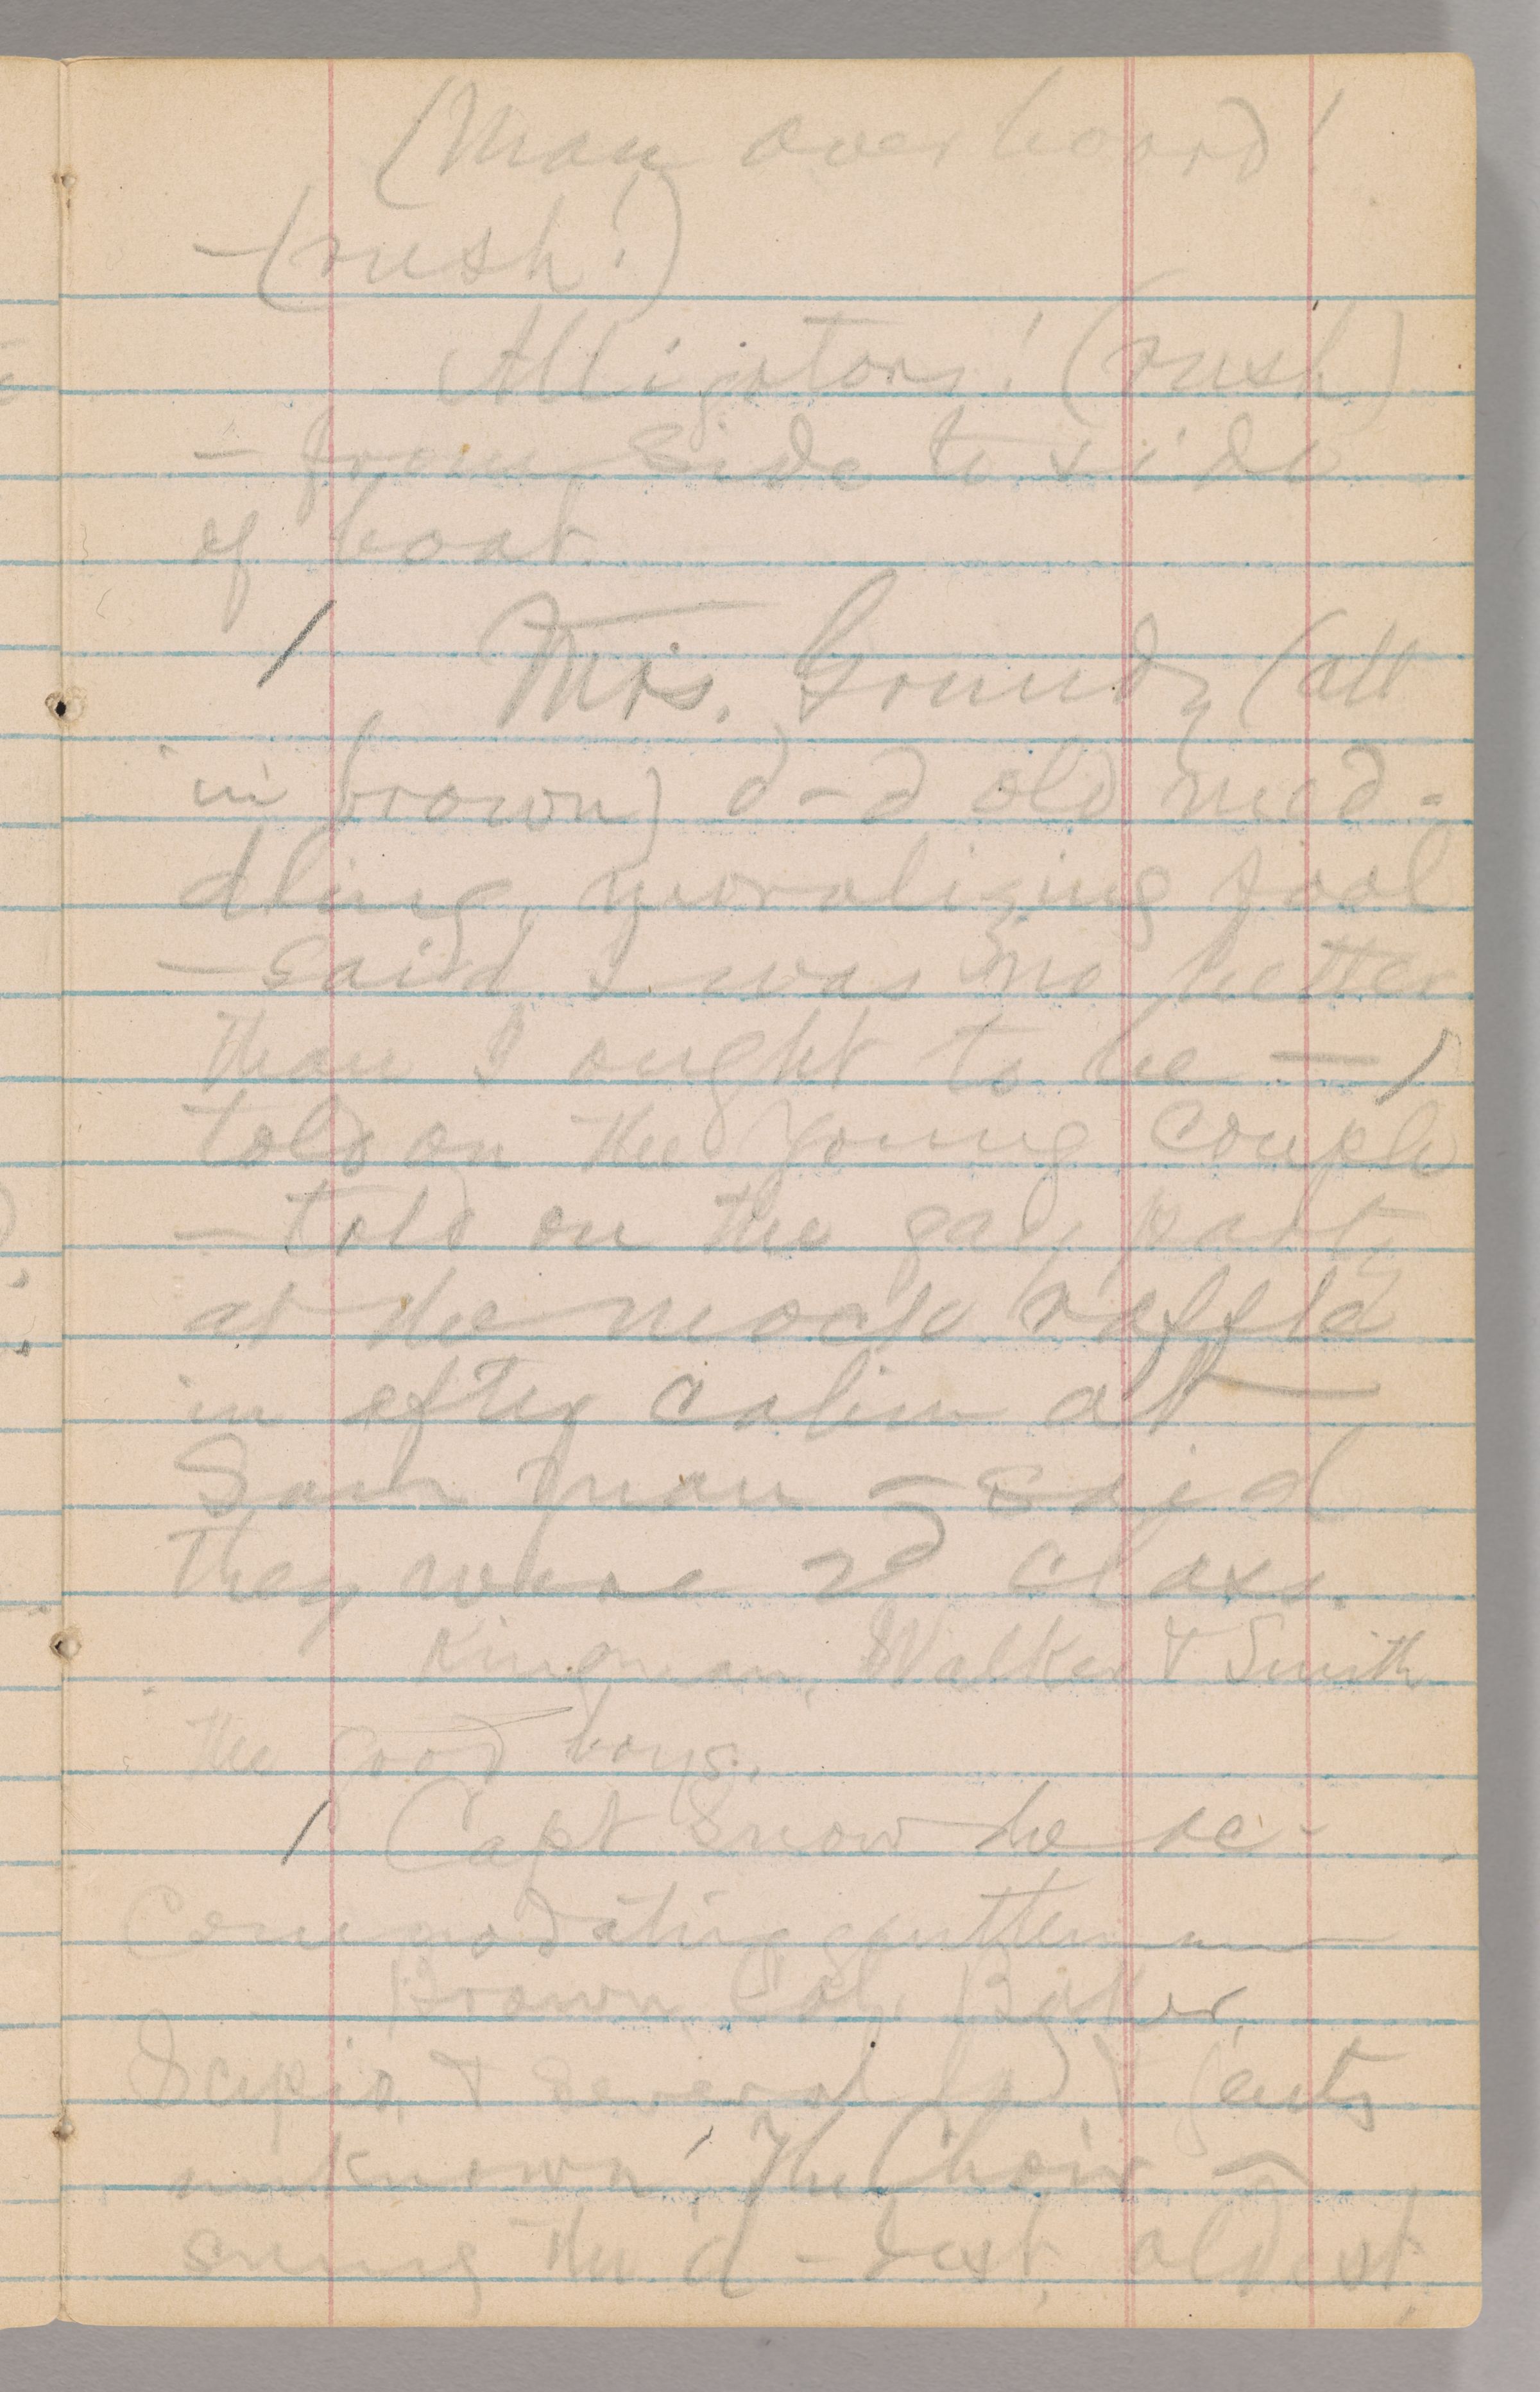 (Man overboard!
—(rush!)
Alligators! (rush)
— from side to side
of boat.
/ Mrs. Grundy (all
in brown) d—d old med-
dling, moralizing fool
— said I was no better
than I ought to be — /
told on the young couple
— told on the gay party
at the mock raffle
in after cabin at
San Juan — said
they were 2d class.
Kingman, Walker & Smith
the good boys.
/ Capt Snow the ac-
commodating gentleman
Brown, Col. Baker,
Scipio, & several gents
unknown, The Choir —
sung the d—dest, oldest,